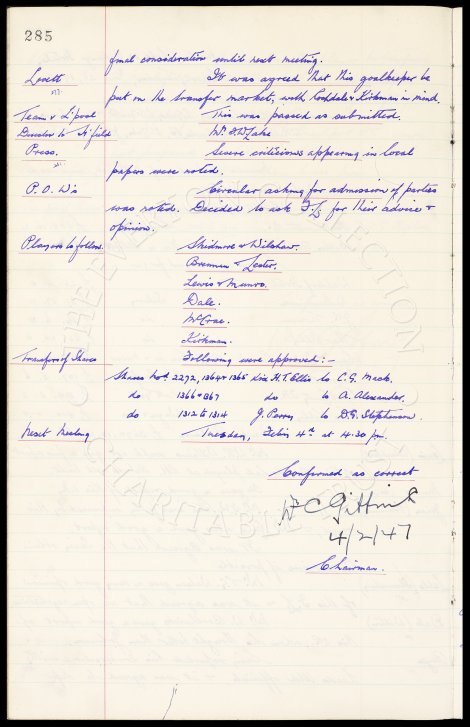 285
final consideration until next meeting.
Lovett It was agreed that this goalkeeper be
put on the transfer market, with Rochdale & Kirkman in mind.
Team v L'pool This was passed as submitted.
Director to H'field Mr. S.W. Lake
Press. Severe criticisms appearing in local
papers were noted.
P.O.W's Circular asking for admission of parties
was noted. Decided to ask F/L for their advice &
opinion.
Players to follow. Skidmore & Wilshaw.
Brennan & Lester.
Lewis & Munro.
Dale.
McCrae.
Kirkman.
Transfers of Shares Following were approved :-
Shares Nos. 2272, 1364 & 1365 H.T. Ellis to C.G. Mack.
do 1366 & 1367 do to A. Alexander.
do 1312 to 1314 J. Parry to D.G. Stephenson.
Next Meeting Tuesday, Feb. 4th at 4.30 pm.
Confirmed as correct
W C Gittins
4/2/47
Chairman.
THE EVERTON COLLECTION
CHARITABLE TRUST